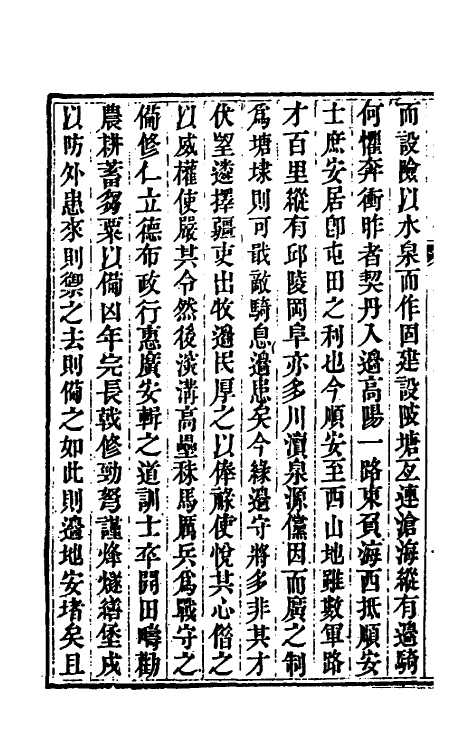 而設險以水泉而作固建設陂塘互連滄海縱有邊騎
何懼奔衝昨者契丹入邊高陽一路東負海西抵順安
士庶安居卽屯田之利也今順安至西山地雖數軍路
才百里縱有邱陵岡阜亦多川瀆泉源儻因而廣之制
爲塘埭則可戢敵騎息邊患矣今緣邊守將多非其才
伏望遴擇疆吏出牧邊民厚之以俸祿使悅其心偕之
以威權使嚴其令然後深溝高壘秣馬厲兵爲戰守之
備修仁立德布政行惠廣安輯之道訓士卒開田疇勸
農耕蓄芻粟以備凶年完長戟修勁弩謹烽燧繕堡戍
以防外患來則禦之去則備之如此則邊地安堵矣且